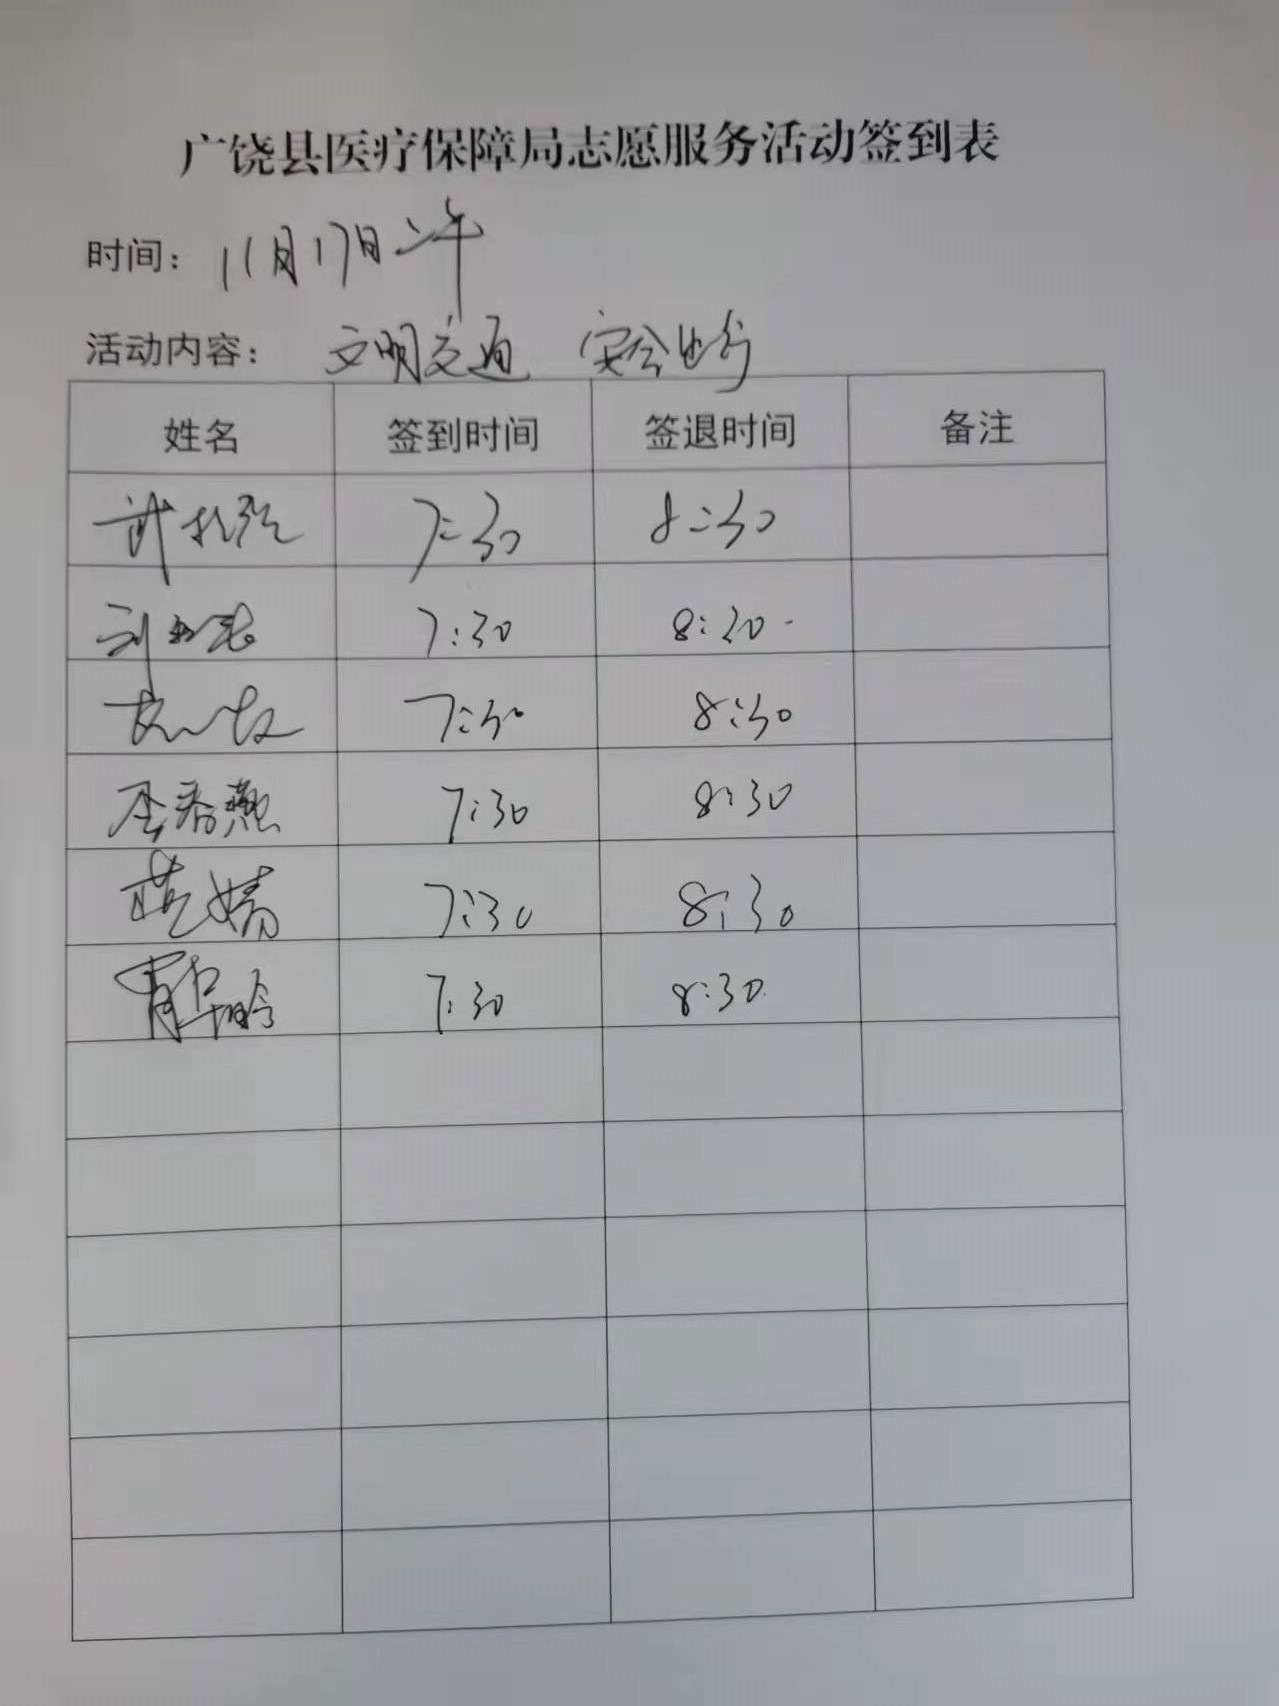 广饶县医疗保障局志愿服务活动签到表
时间：11月17日上午
活动内容：文明交通 安全出行
姓名 签到时间 签退时间 备注
7:30 8:30
7:30 8:20
7:30 8:30
7:30 8:30
7:30 8:30
7:30 8:30